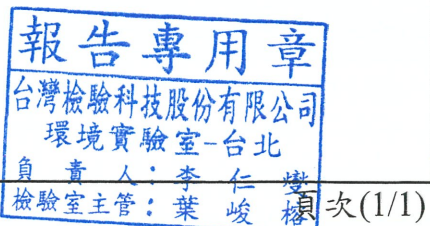 報告專用章
台灣檢驗科技股份有限公司
環境實驗室-台北
負責人：李仁燮
檢驗室主管：葉峻榕
頁次(1/1)